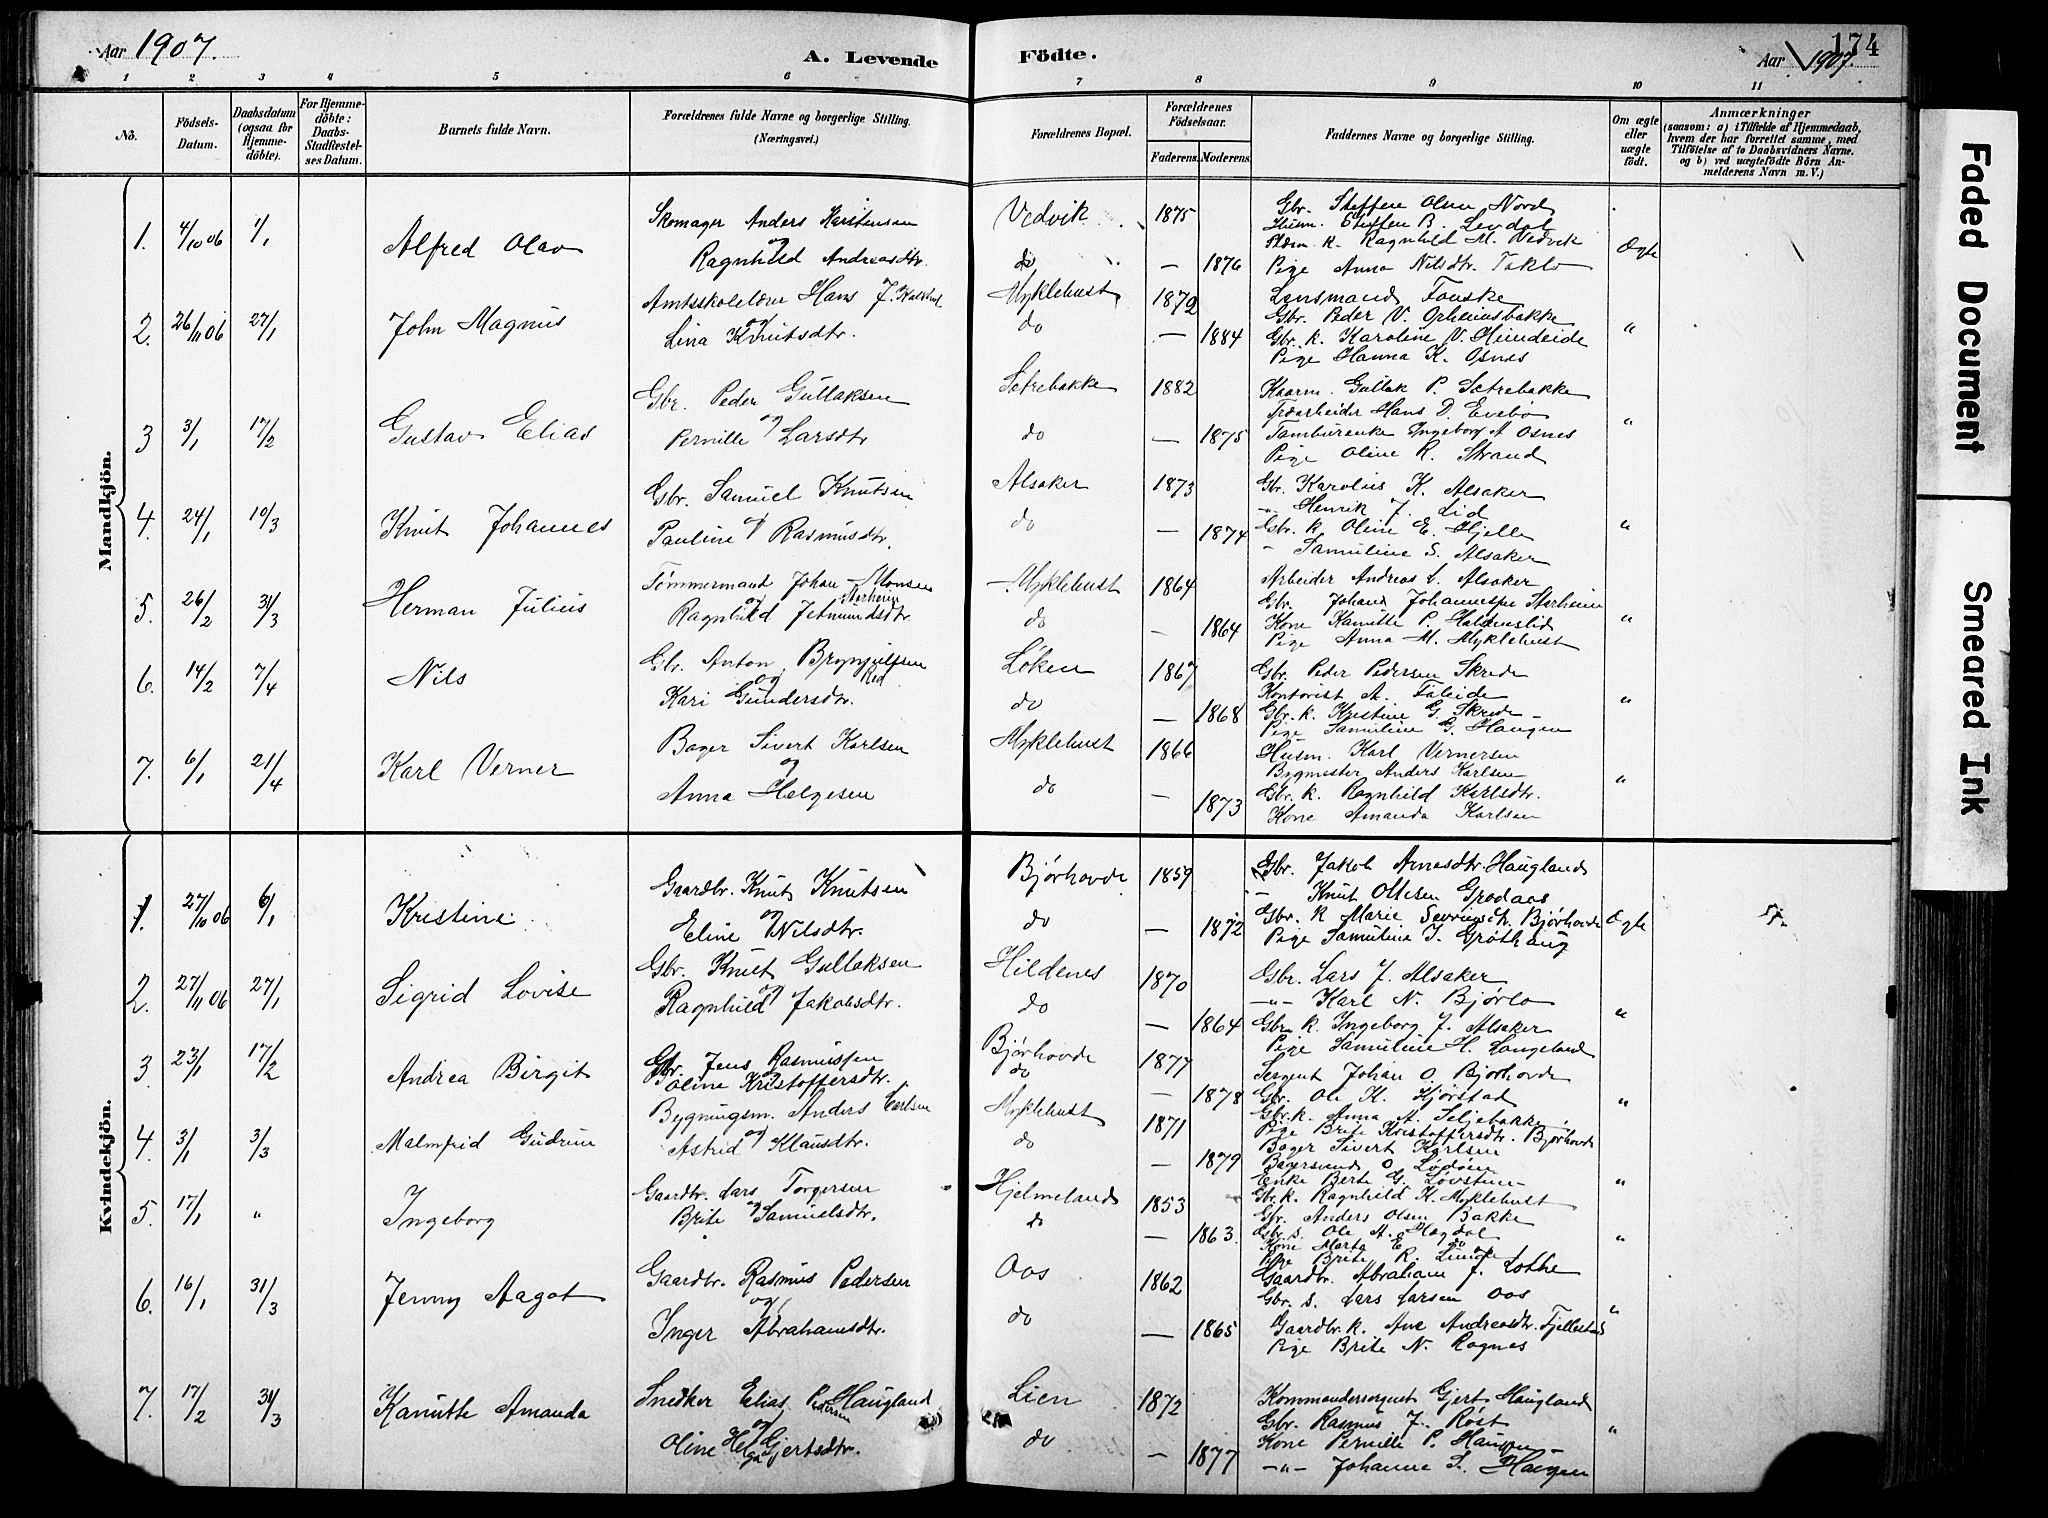 Aar 1907.
A. Levende Födte.
174
Aar 1907.
1 2 3 4 5 6 7 8 9 10 11
No.
Födsels-Datum.
Daabsdatum (ogsaa for Hjemme-döbte).
For Hjemme-döbte: Daabs-Stadfæstel-ses Datum.
Barnets fulde Navn.
Forældrenes fulde Navne og borgerlige Stilling. (Næringsvei.)
Forældrenes Bopæl.
Forældrenes Födselsaar.
Faderens. Moderens.
Faddernes Navne og borgerlige Stilling.
Om ægte eller uægte födt.
Anmærkninger
(saasom: a) i Tilfælde af Hjemmedaab, hvem der har forrettet samme, med Tilföielse af to Daabsvidners Navne. og b) ved uægtefödte Börn Anmelderens Navn m. V.)
Mandkjön.
1. 4/10 06 1/1 Alfred Olav
Skomager Anders Karstensen
og
Ragnhild Andreasdtr.
Vedvik 1875
do — 1876
Gbr. Steffen Olsen Nord
Husm. Steffen B. Levdal
K. Ragnhild M. Vedvik
Pige Anna Nilsdtr. Taklo
Ægte
2. 26/11 06 27/1 John Magnus
Amtsskolelærer Hans J.
og
Lina Knutsdtr.
Myklebust 1879
do — 1884
Lensmand Fonske
Gbr. Peder V. Orheimsbakke
Gbr. k. Karoline V. Heimdeide
Pige Hanna K. Osnes
"
3 3/1 17/2 Gustav Elias
Gbr. Peder Gullaksen
og
Pernille Larsdtr
Sætrebakke 1882
do — 1875
Kaarm. Gullak P. Sætrebakke
Træarbeider Hans D. Evebø
Ingeborg A Osnes
Pige Oline R. Strand
"
4. 24/1 10/3 Knut Johannes
Gbr. Samuel Knutsen
og
Pauline Rasmusdtr.
Alsaker 1873
do — 1874
Gbr. Karolus K. Alsaker
-"- Henrik J. Lid
Gbr. k Oline E. Hjelle
- Samuline S. Alsaker
"
5. 26/2 31/3 Herman Julius
Tømmermand Johan Monsen
Starheim
og
Ragnhild Jetmundsdtr.
Myklebust 1864
do — 1864
Arbeider Andreas L. Alsaker
Gbr. Johan Johannessen Starheim
Kone Kanutte P.
Pige Anna M. Myklebust
"
6. 14/2 7/4 Nils
Gbr. Anton Brynjulfsen
og
Kari Gundersdtr.
Løken 1867
do — 1868
Gbr. Peder Pedersen Skrede
Kontorist A. Faleide
Gbr. k. Kristine G. Skrede
Pige Samuline G. Haugen
"
7. 6/1 21/4 Karl Verner
Bager Sivert Karlsen
og
Anna Helgesen
Myklebust 1866
do — 1873
Husm. Karl Vernersen
Bygmester Anders Karlsen
Gbr. k. Ragnhild Karlsdtr.
Kone Amanda Karlsen
"
Kvindekjön.
1. 27/10 06 6/1 Kristine
Gaardbr. Knut Knutsen
og
Eline Nilsdtr.
Bjørhovde 1859
do — 1872
Gbr. Jakob Arnesdtr. Haugland
- Knut Ottesen Grodaas
Gbr. k Marie Sevrinsdtr. Bjørhovde
Pige Samuline J. Grøthaug
Ægte
2. 27/11 06 27/1 Sigrid Lovise
Gbr. Knut Gullaksen
og
Ragnhild Jakobsdtr.
Hildenes 1870
do — 1864
Gbr. Lars J. Alsaker
-"- Karl N. Bjørlo
Gbr k. Ingeborg J. Alsaker
Pige Samuline H. Langeland
"
3. 23/1 17/2 Andrea Birgit
Gbr. Jens Rasmussen
og
Oline Kristoffersdtr.
Bjørhovde 1877
do — 1878
Sergent Johan O Bjørhovde
Gbr. Ole K. Hjørstad
Gbr. k. Anna A. Seljebakke
Pige Brite Kristoffersdtr. Bjørhovde
"
4. 3/1 3/3 Malmfrid Gudrun
Bygningsm. Anders Carlsen
og
Astrid Klausdtr.
Myklebust 1871
do — 1879
Bager Sivert Karlsen
Bagersvend O. Lødøen
Enke Berte G. Løvstuen
Gbr. k. Ragnhild K. Myklebust
"
5. 17/1 " Ingeborg
Gaardbr. Lars Torgersen
og
Brite Samuelsdtr.
Hjelmeland 1853
do — 1863.
Gbr. Anders Olsen Bakke
Gbr. s. Ole A. Mogdal
Kone Marta E. do
Pige Brite R. Linde
"
6. 16/1 31/3 Jenny Aagot
Gaardbr. Rasmus Pedersen
og
Inger Abrahamsdtr.
Oos 1862
do — 1865
Gaardbr. Abraham J. Lothe
Gbr. s. Lars Larsen Oos
Gaardbr. k. Ane Andreasdtr. Fjellestad
Pige Brite N. Rognes
"
7. 17/2 31/3 Kanutte Amanda
Snedker Elias Pedersen Haugland
og
Oline Helga Gjertsdtr.
Lien 1872
do — 1877
Kommandersergent Gjert Haugland
Gbr. Rasmus J. Røst
Kone Pernille P. Haugen
-"- Johanne S. Haugen
"
Faded Document
Smeared Ink